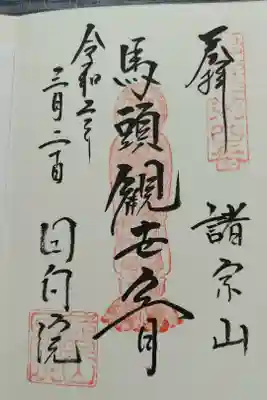 奉拝
諸宗山
馬頭觀世音
令和二年
三月二日
回向院